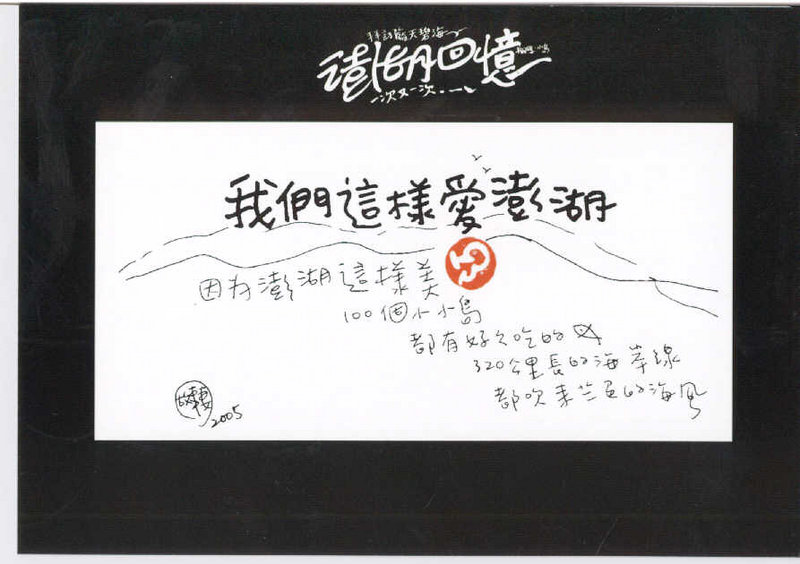 拜訪藍天碧海
澎湖回憶
一次又一次
我們這樣愛澎湖
因为澎湖這樣美
100個小小島
都有好久吃的
320公里長的海岸線
都吹来兰色的海风
2005